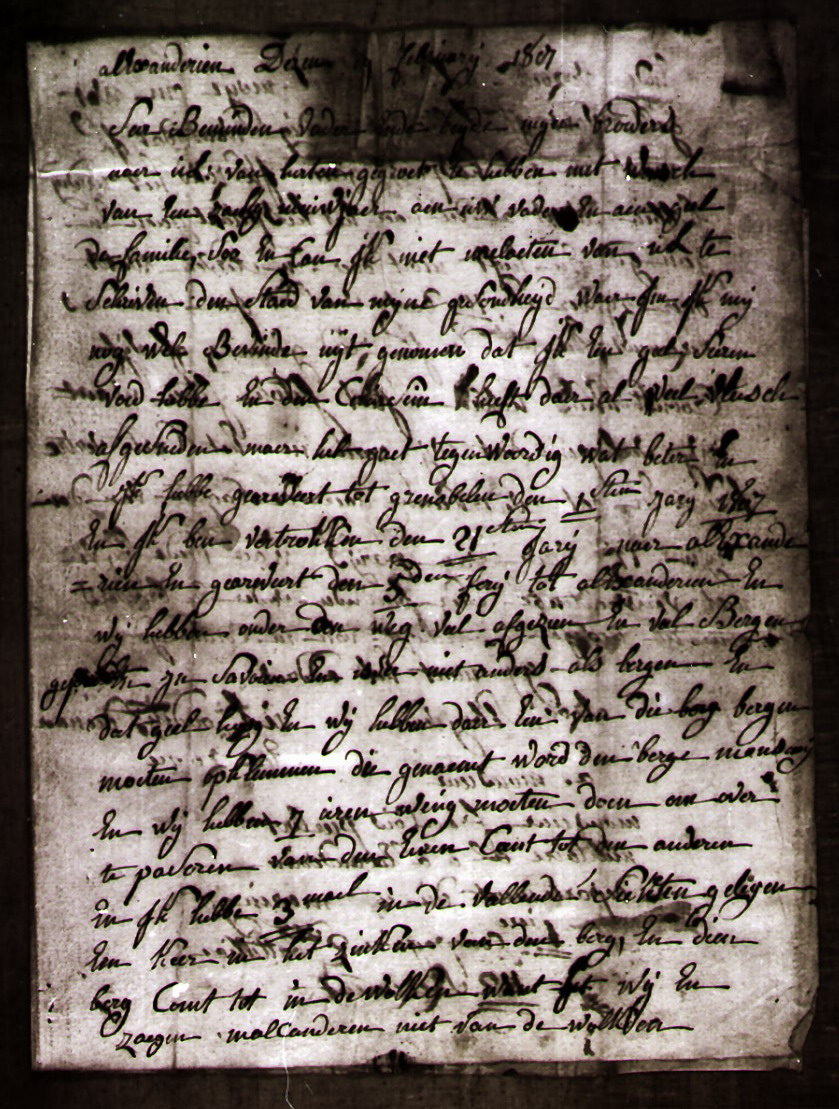 allxanderien Dezen february 1807
Seer Beminden Vader ende beyde mijne broeders
naer ul: van herten gegroet te hebben met wensch
van een zaelig nieuwjaer aen ul vader En aen geel
De familie, Soo En Can Jk niet naelaeten van ul te
Schriven den Staed van mijne gesondheyd waer Jn Jk mij
nog wel Bevinde uijt, genomen dat Jk Een geel, Sieren
voed hebbe En den heeft daer al veel vleesch
afgevinden maer het gaet tegenwoordig wat beter En
Jk hebbe gearriveert tot grenobelen den 1 Sten Jary 1807
En Jk ben vertrokken den 21 sten Jary naer allexande
=rien En gearivert den 5 den fery tot allexanderien En
wij hebben onder den weg veel afgezien En veel Bergen
gepasseert Jn Savoien En niet anders als bergen En
dat geel hoog En wij hebben daer Een van die bergen
moeten opklemmen die genaemt word den berge
En wij hebben 7 ieren weng moeten doen om over
te paseren van den Eenen Cant tot den anderen
En Jk hebbe 3 mael in de vallende Siekten geligen
Een Keer in het van den berg, En dien
berg Comt tot in de Wolken want wij En
zaegen malcanderen niet van de wolken